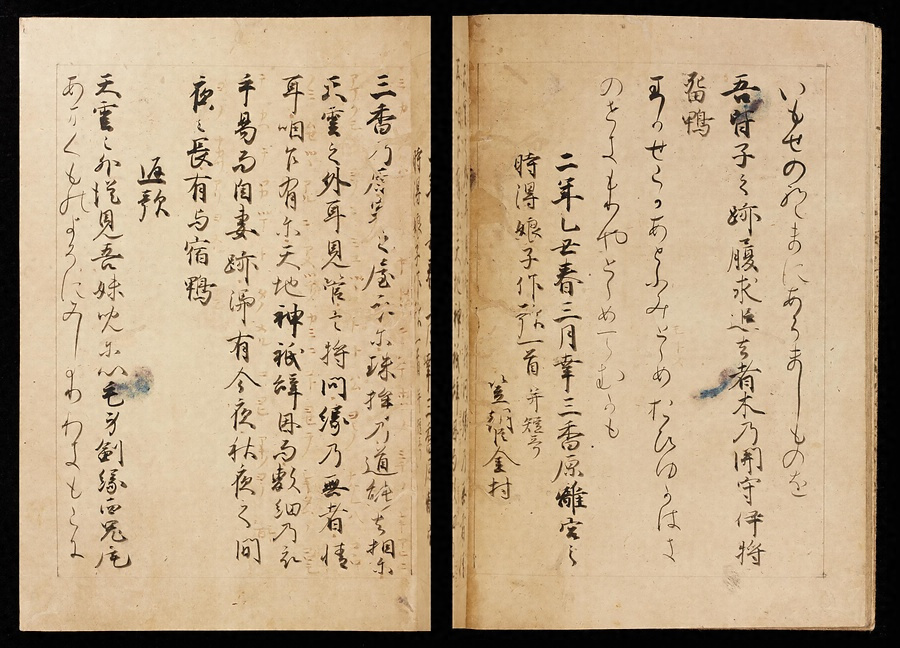 いもせのやまにあらましものを
吾背子之跡履求追去者木乃関守伊将
留鴨
わかせこかあとふみとめおひゆかはき
のせきもりやとゝめてむかも
二年乙丑春三月幸三香原離宮之
時得娘子作歌一首 并短哥
笠朝臣金村
三香乃原客之屋取尓珠桙乃道能去相尓
天雲之外耳見管言将問縁乃無者情
耳咽乍有尓天地神祇辞因而敷細乃衣
手易而自妻跡憑有今夜秋夜之間
夜之長有与宿鴨
返歌
天雲之外従見吾妹児尓心毛身副縁西鬼尾
あまくものよそにみしよりわきもこに